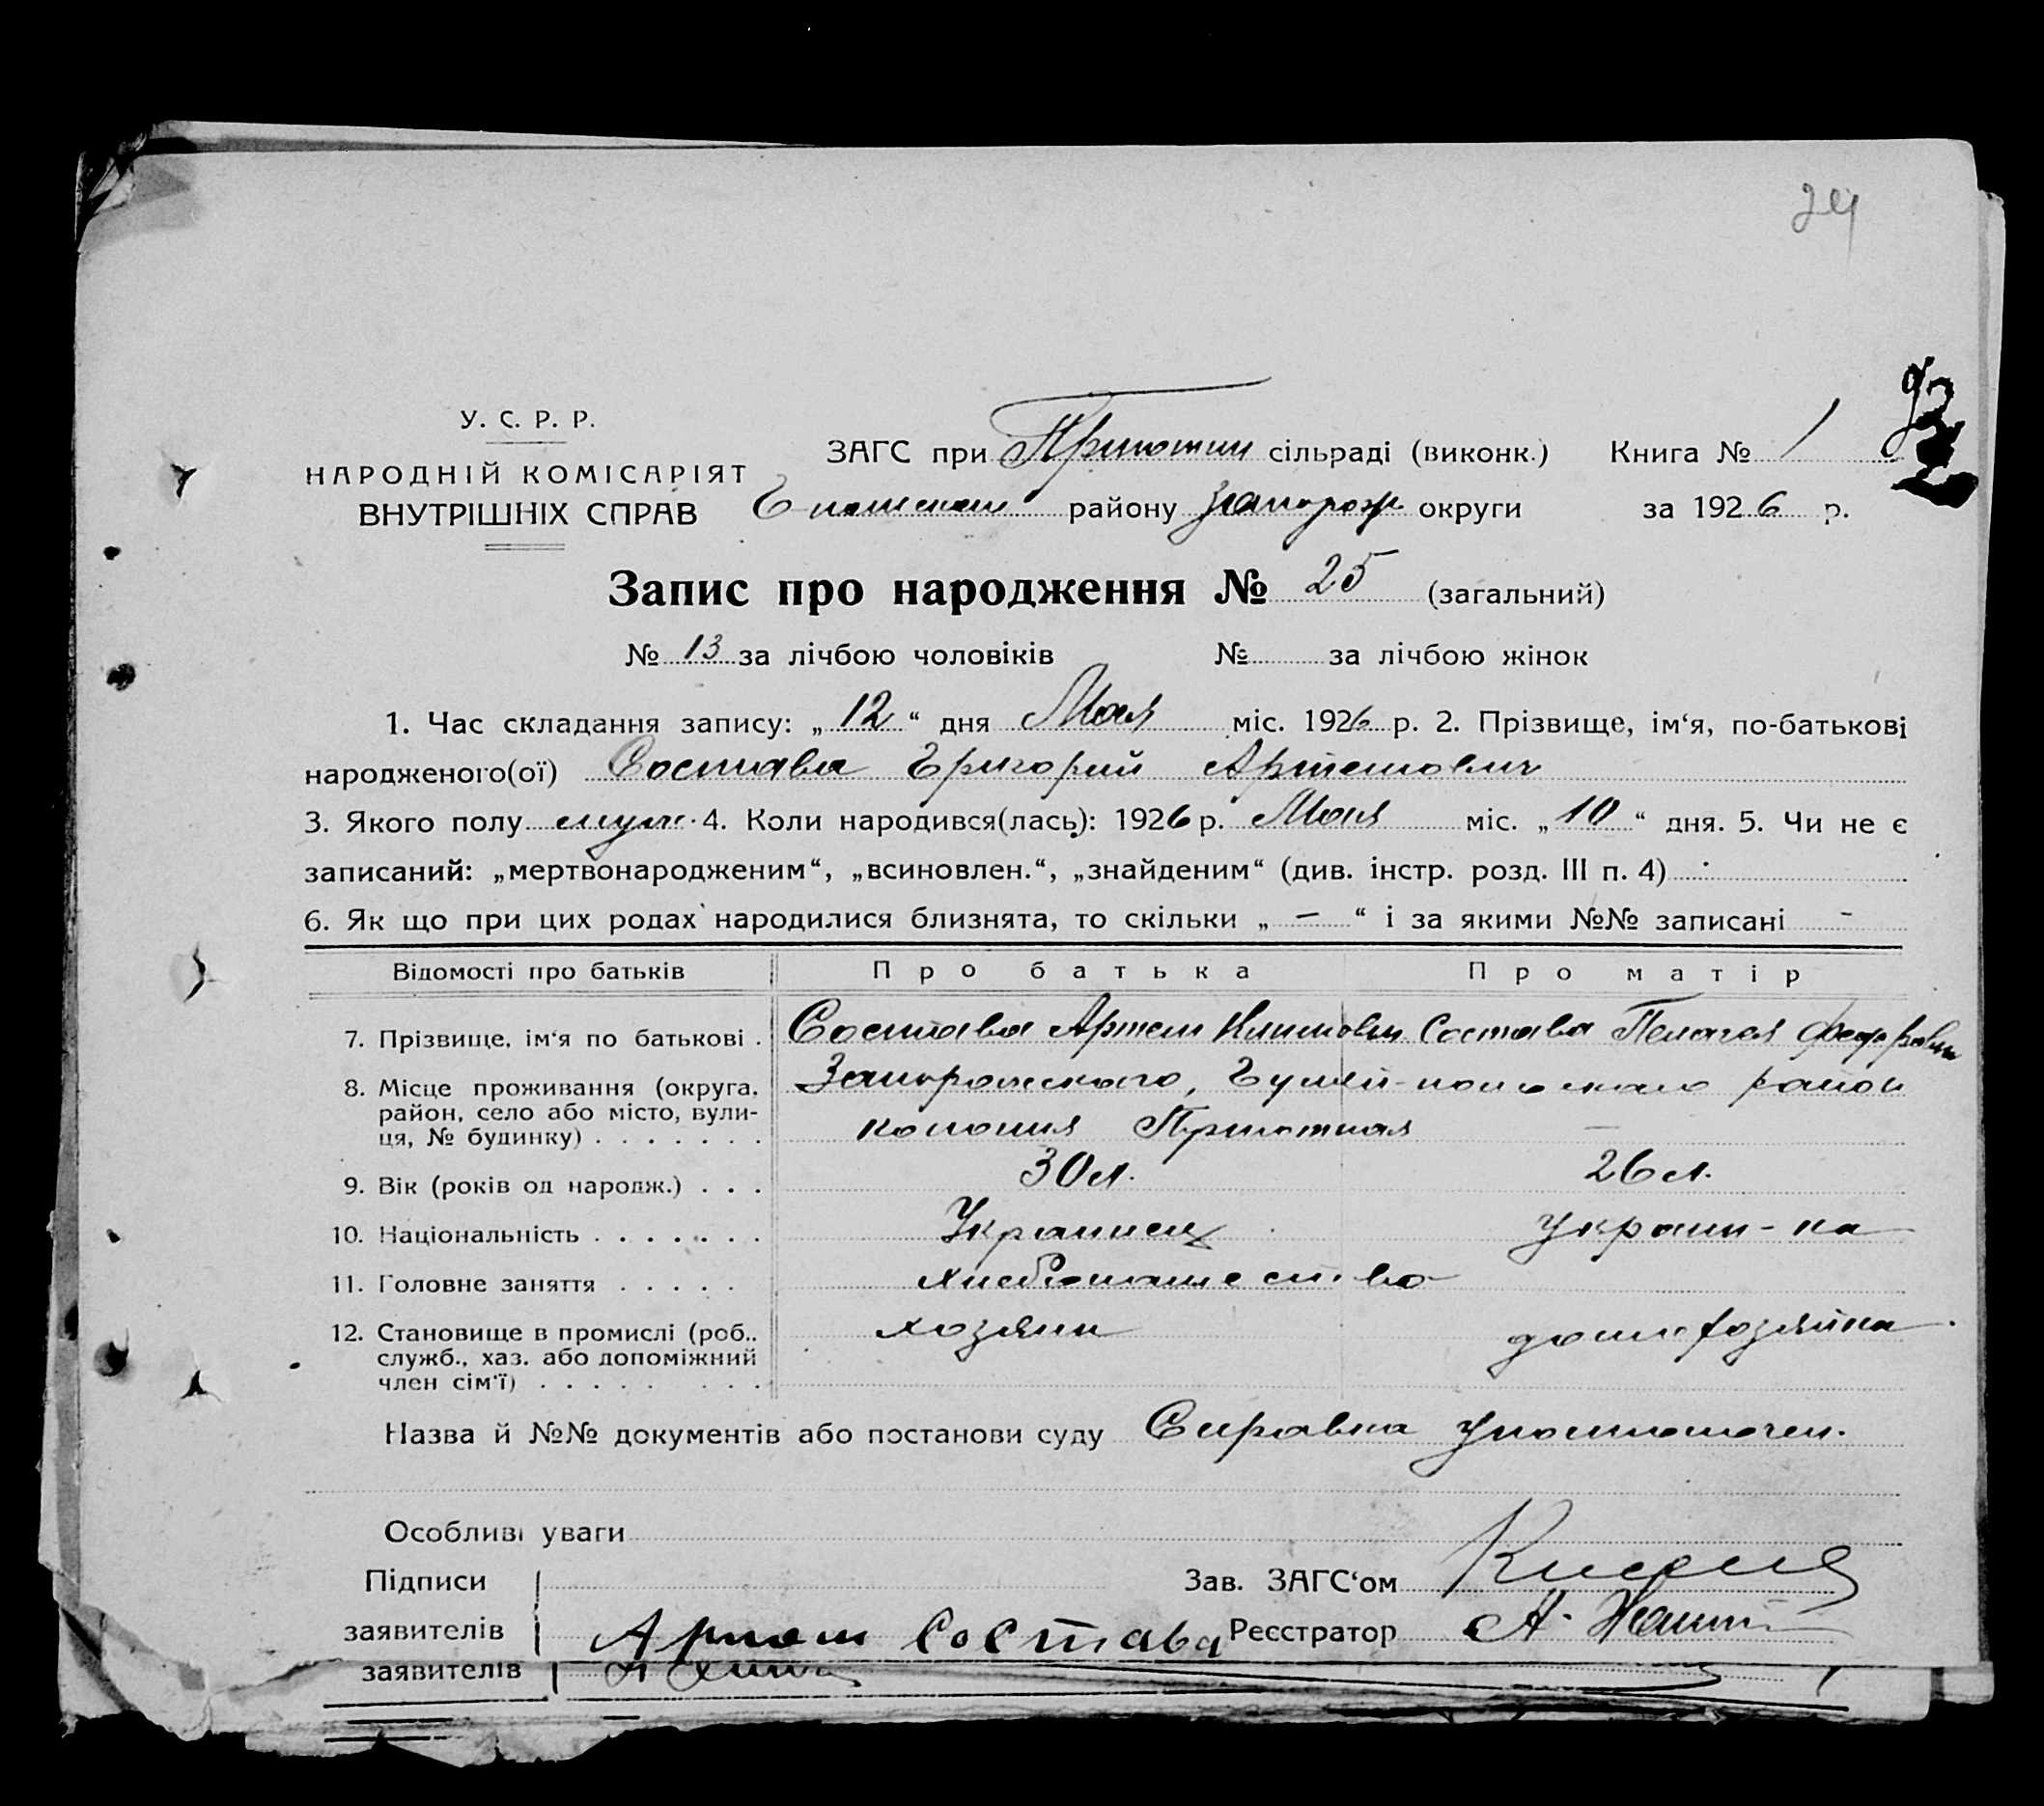 24
У. С. Р. Р.
НАРОДНІЙ КОМІСАРІЯТ
ВНУТРІШНІХ СПРАВ
ЗАГС при сільраді (виконк.) Книга № 1
району Запорож округи за 1926 р.
Запис про народження № 25 (загальний)
№ 13 за лічбою чоловіків № за лічбою жінок
1. Час складання запису: „12“ дня Мая міс. 1926 р. 2. Прізвище, ім‘я, по-батькові
народженого(ої) Состава Григорий Артемович
3. Якого полу муж. 4. Коли народився(лась): 1926 р. Мая міс. „10“ дня. 5. Чи не є
записаний: „мертвонародженим“, „всиновлен.“, „знайденим“ (див. інстр. розд. III п. 4)
6. Як що при цих родах народилися близнята, то скільки „ — “ і за якими №№ записані -
Відомості про батьків Про батька Про матір
7. Прізвище, ім‘я по батькові . Состава Артем Климович Состава Пелагея
8. Місце проживання (округа, Запорожского, Гуляй-польского район
район, село або місто, вули-
ця, № будинку) . . . . . . . колония Приютная —
9. Вік (років од народж.) . . . 30 л. 26 л.
10. Національність . . . . . . . Украинец Украин-ка
11. Головне заняття . . . . . хлебопашество
12. Становище в промислі (роб., хозяин домохозяйка.
служб., хаз. або допоміжний
член сім‘ї) . . . . . . . .
Назва й №№ документів або постанови суду Справка Уполномочен.
Особливі уваги
Підписи Зав. ЗАГС‘ом
заявителів Артем Состава Реєстратор А.
заявителів